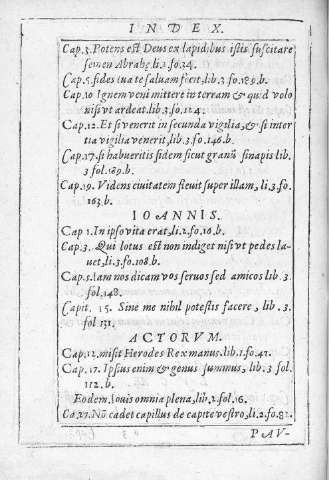 INDEX.
Cap.3. Potens est Deus ex lapidibus istis suscitare
semen Abrahę li.2.fo.34.
Cap.5. fides tua te saluam fecit, lib.3.fo.189.b.
Cap.10 Ignem veni mittere in terram & quid volo
nisi vt ardeat. lib.3.fo.124.
Cap.12. Et si venerit in secunda vigilia, & si inter
tia vigilia venerit, lib.3.fo.146.b.
Cap.17. si habueritis fidem sicut granũ sinapis lib.
3 fol.189.b.
Cap.19. Videns ciuitatem fleuit super illam, li.3.fo.
163.b.
IOANNIS.
Cap 1. In ipso vita erat, li.2.fo.16.b.
Cap.3. Qui lotus est non indiget nisi vt pedes la-
uet, li.3.fo.108.b.
Cap.5. Iam nos dicam vos seruos sed amicos lib.3.
fol.148.
Capit. 15. Sine me nihil potestis facere, lib. 3.
fol 131.
ACTORVM.
Cap.12. misit Herodes Rex manus. lib.1.fo.42.
Cap. 17. Ipsius enim & genus sumus, lib.3 fol.
112.b.
Eodem. Iouis omnia plena, lib.2.fol.16.
Ca.27. Nõ cadet capillus de capite vestro, li.2.fo.82.
PAV-